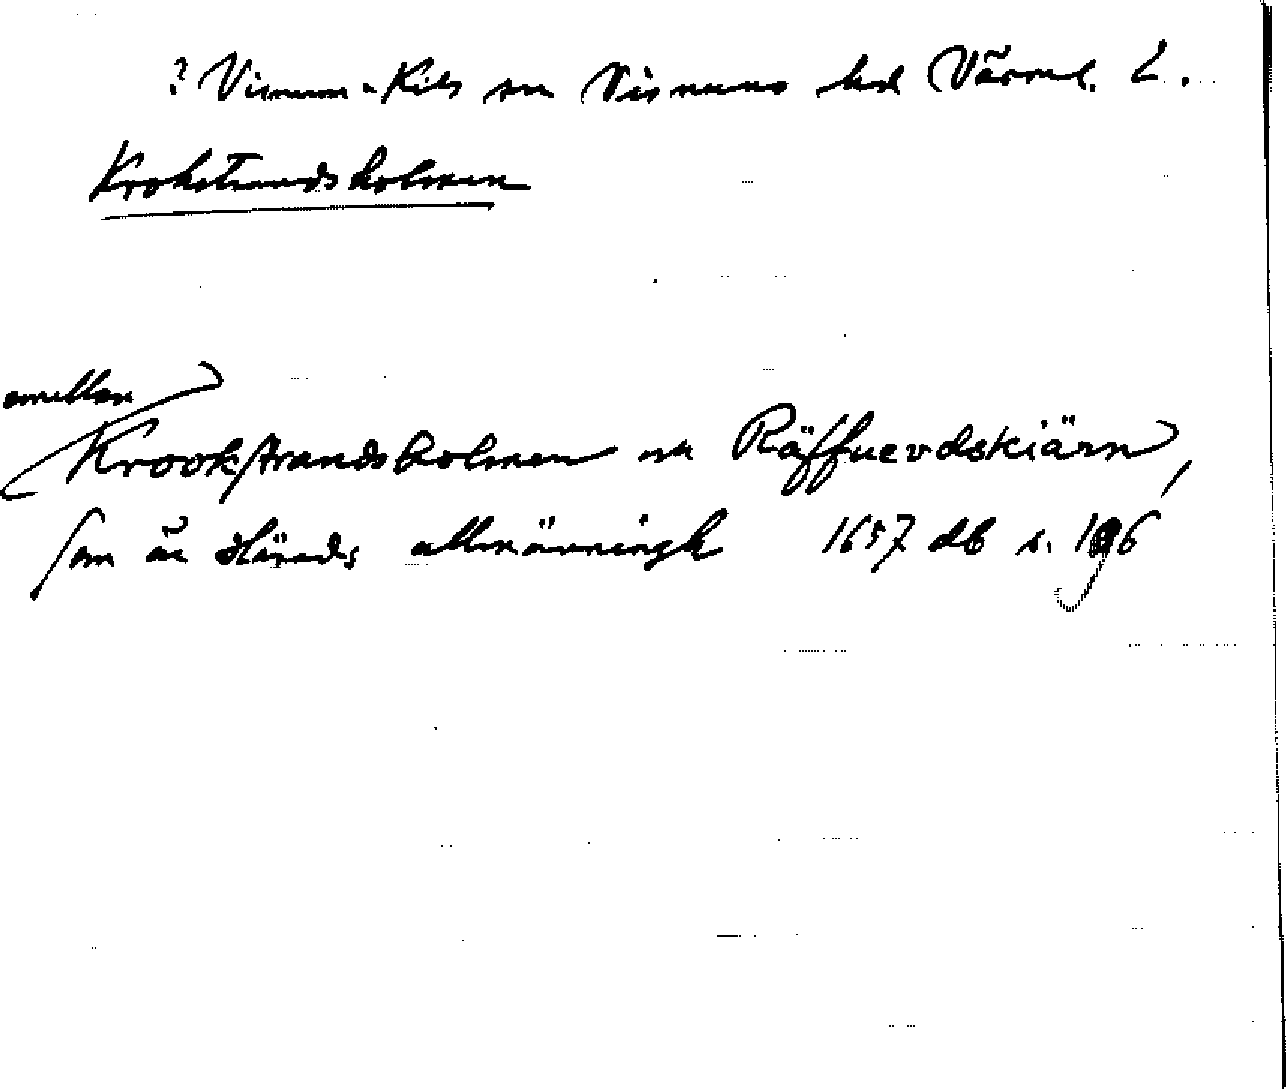 ? Visnum-Kils sn Visnums hd Värml. L.
Krokstrandsholmen
emellan
Krookstrandsholmen och Räffuerdskiärn,
som är Häredz allmänningh 1657 db s. 196